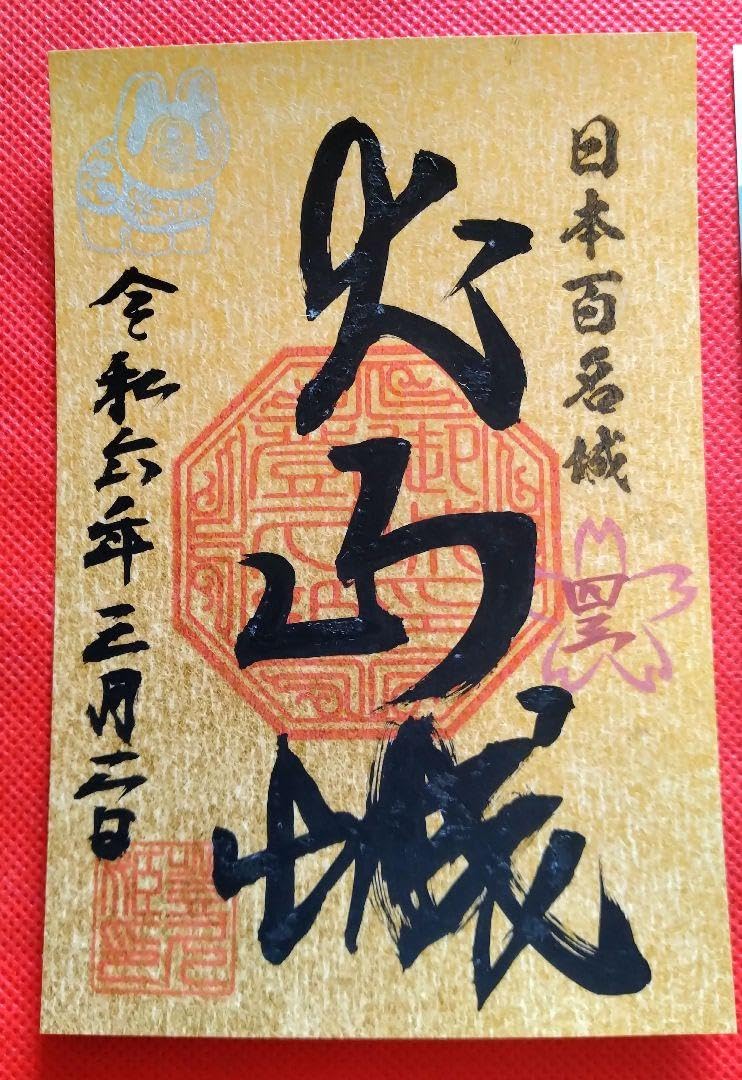 日本百名城
四三
犬山城
令和六年三月二日